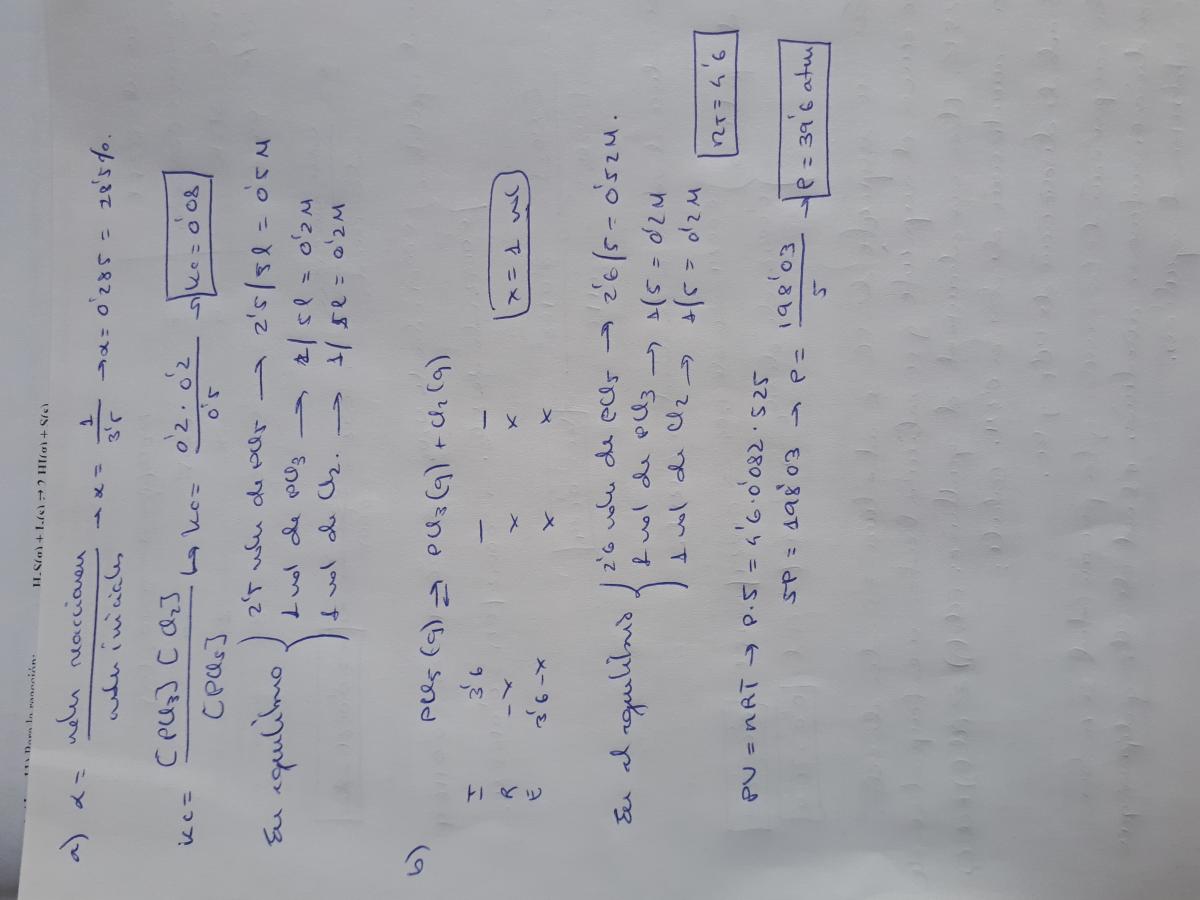 a) α = moles reaccionan / moles iniciales → α = 1/3'5 → α = 0'285 = 28'5%.
Kc = [PCl3][Cl2] / [PCl5] ↳ Kc = 0'2 · 0'2 / 0'5 → Kc = 0'08
En equilibrio } 2'5 moles de PCl5 → 2'5/5l = 0'5 M
1 mol de PCl3 → 1/5l = 0'2M
1 mol de Cl2. → 1/5l = 0'2M
b) PCl5 (g) ⇌ PCl3 (g) + Cl2 (g)
I 3'6 — —
R -x x x x = 1 mol
E 3'6-x x x
En el equilibrio } 2'6 moles de PCl5 → 2'6/5 = 0'52M.
1 mol de PCl3 → 1/5 = 0'2M
1 mol de Cl2 → 1/5 = 0'2M nT = 4'6
PV = nRT → P·5 = 4'6·0'082·525
5P = 198'03 → P = 198'03 / 5 → P = 39'6 atm